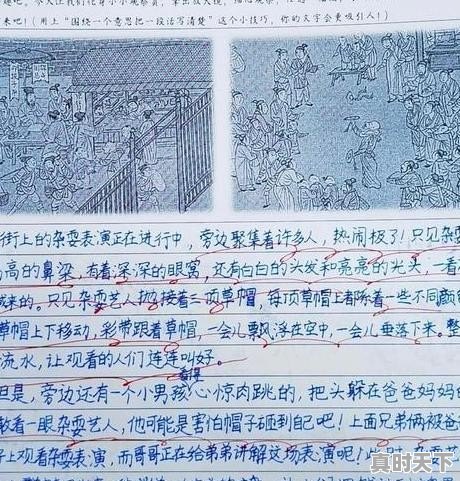 趣吧！今天让我们化身小小观察员，拿出放大镜，细心观察，
来吧！（用上“围绕一个意思把一段话写清楚”这个小技巧，你的文字会更吸引人！）
街上的杂耍表演正在进行中，旁边聚集着许多人，热闹极了！只见杂
高高的鼻梁，有着深深的眼窝，还有白白的头发和亮亮的光头，一看
域来的。只见杂耍艺人抛接着三顶草帽，每顶草帽上都降着一些不同颜
草帽上下移动，彩带跟着草帽，一会儿飘浮在空中，一会儿垂落下来。整
流水，让观看的人们连连叫好。
看得
但是，旁边还有一个小男孩心惊肉跳的，把头躲在爸爸妈妈的
敢看一眼杂耍艺人，他可能是害怕帽子砸到自己吧！上面兄弟俩被爸
子上观看杂耍表演，而哥哥正在给弟弟讲解这场表演呢！
真时天下